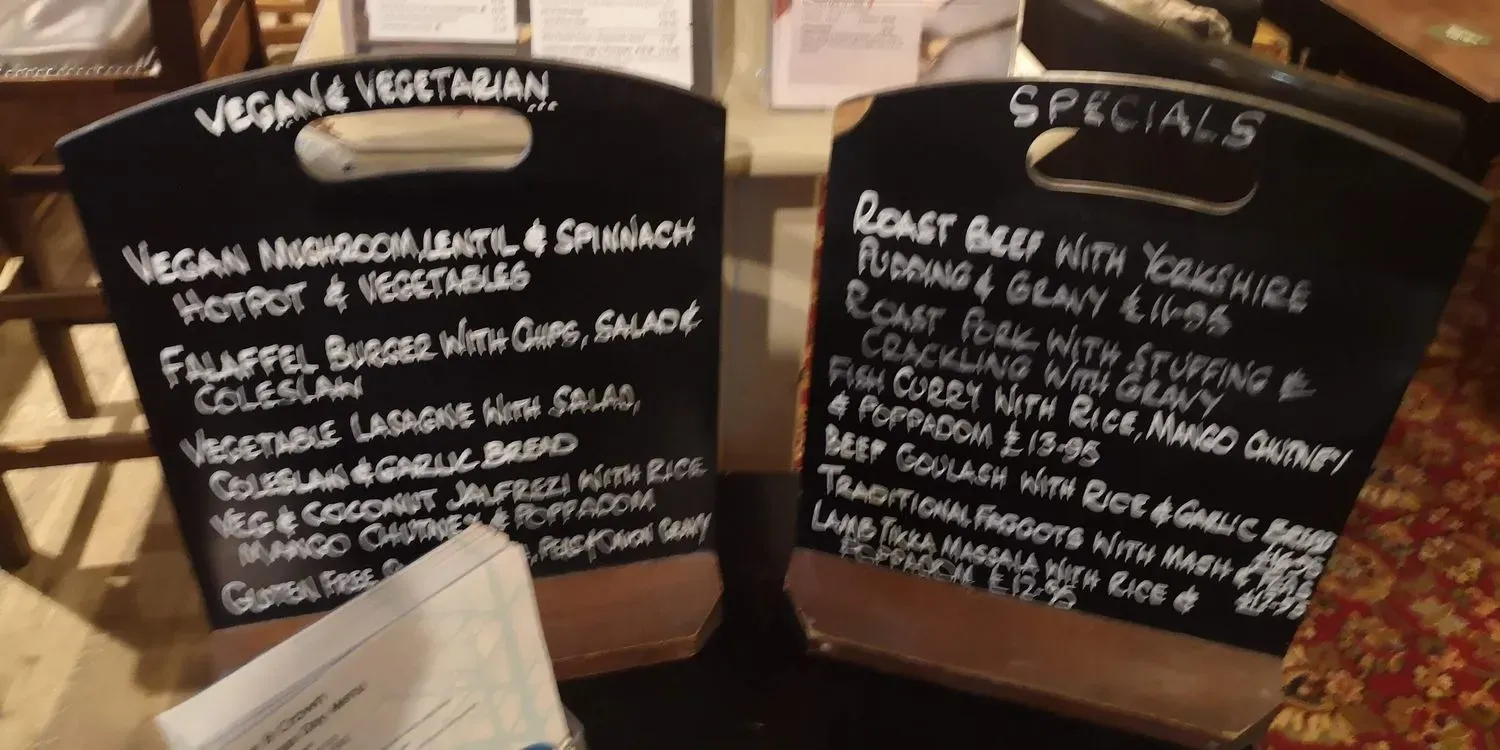 VEGAN & VEGETARIAN...
VEGAN MUSHROOM, LENTIL & SPINNACH
HOTPOT & VEGETABLES
FALAFFEL BURGER WITH CHIPS, SALAD &
COLESLAW
VEGETABLE LASAGNE WITH SALAD,
COLESLAW & GARLIC BREAD
VEG & COCONUT JALFREZI WITH RICE
MANGO CHUTNEY & POPPADOM
GLUTEN FREE
, PEAS & ONION GRAVY
SPECIALS
ROAST BEEF WITH YORKSHIRE
PUDDING & GRAVY £11-95
ROAST PORK WITH STUFFING &
CRACKLING WITH GRAVY
FISH CURRY WITH RICE, MANGO CHUTNEY
& POPPADOM £13-95
BEEF GOULASH WITH RICE & GARLIC BREAD
TRADITIONAL FAGGOTS WITH MASH &
LAMB TIKKA MASSALA WITH RICE &
POPPADOM £12-95
Crown